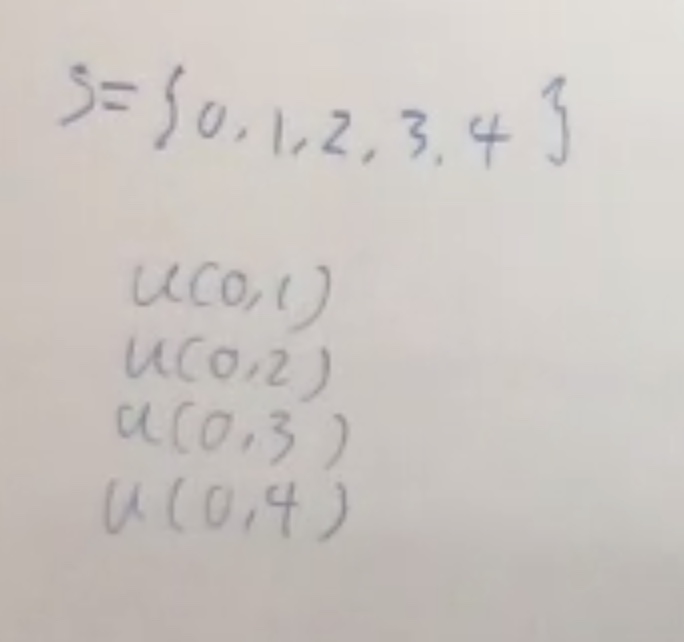 S={0,1,2,3,4}
u(0,1)
u(0,2)
u(0,3)
u(0,4)